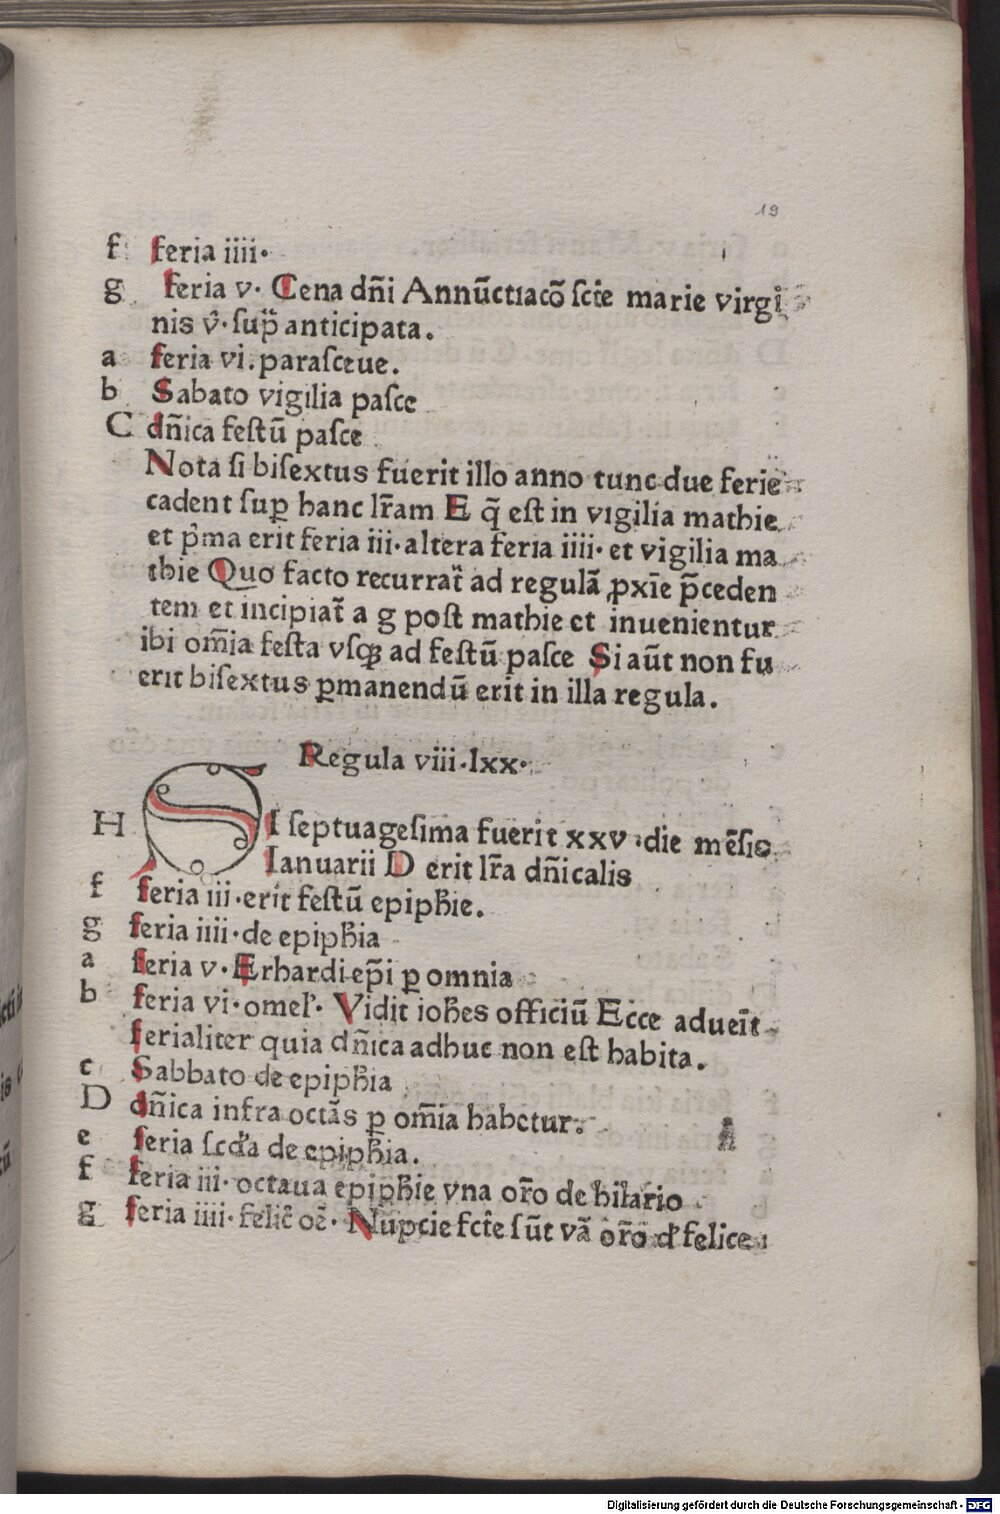 19
f feria iiii·
g feria v· Cena dn̄i Annūctıacō ſctē marie virgi
nis v̇·ſup̄ anticipata.
a feria vi.paraſceue.
b Sabato vigilia paſce
C dn̄ica feſtū paſce
Nota ſi biſextus fuerit illo anno tunc due ferie
cadent ſuꝑ hanc lr̄am E q̄ eſt in vigilia mathie
et p̄ma erit feria iii·altera feria iiii· et vigilia ma
thie Quo facto recurrat̄ ad regulā ꝓxīe p̄ceden
tem et incipiat̄ a g poſt mathie et inuenientur
ibi om̄ia feſta vſqꝫ ad feſtū paſce Si aūt non fu
erit biſextus ꝑmanendū erit in illa regula.
Regula viii·lxx·
H SI ſeptuageſima fuerit xxv·die mēſis
Ianuarii D erit lr̄a dn̄icalis
f feria iii·erit feſtū epiph̄ie.
g feria iiii·de epiph̄ia
a feria v·Erhardi ep̄i ꝑ omnia
b feria vi·omel'· Vidit ioh̄es officiū Ecce adueīt
ferialiter quia dn̄ica adhuc non eſt habita.
c Sabbato de epiph̄ia
D dn̄ica infra octās ꝑ om̄ia habetur.
e feria ſcd̄a de epiph̄ia.
f feria iii·octaua epiph̄ie vna or̄o de hilario
g feria iiii·felic̄ oc̄· Nupcie fctē ſūt vā or̄o d' felice
Digitalisierung gefördert durch die Deutsche Forschungsgemeinschaft - DFG